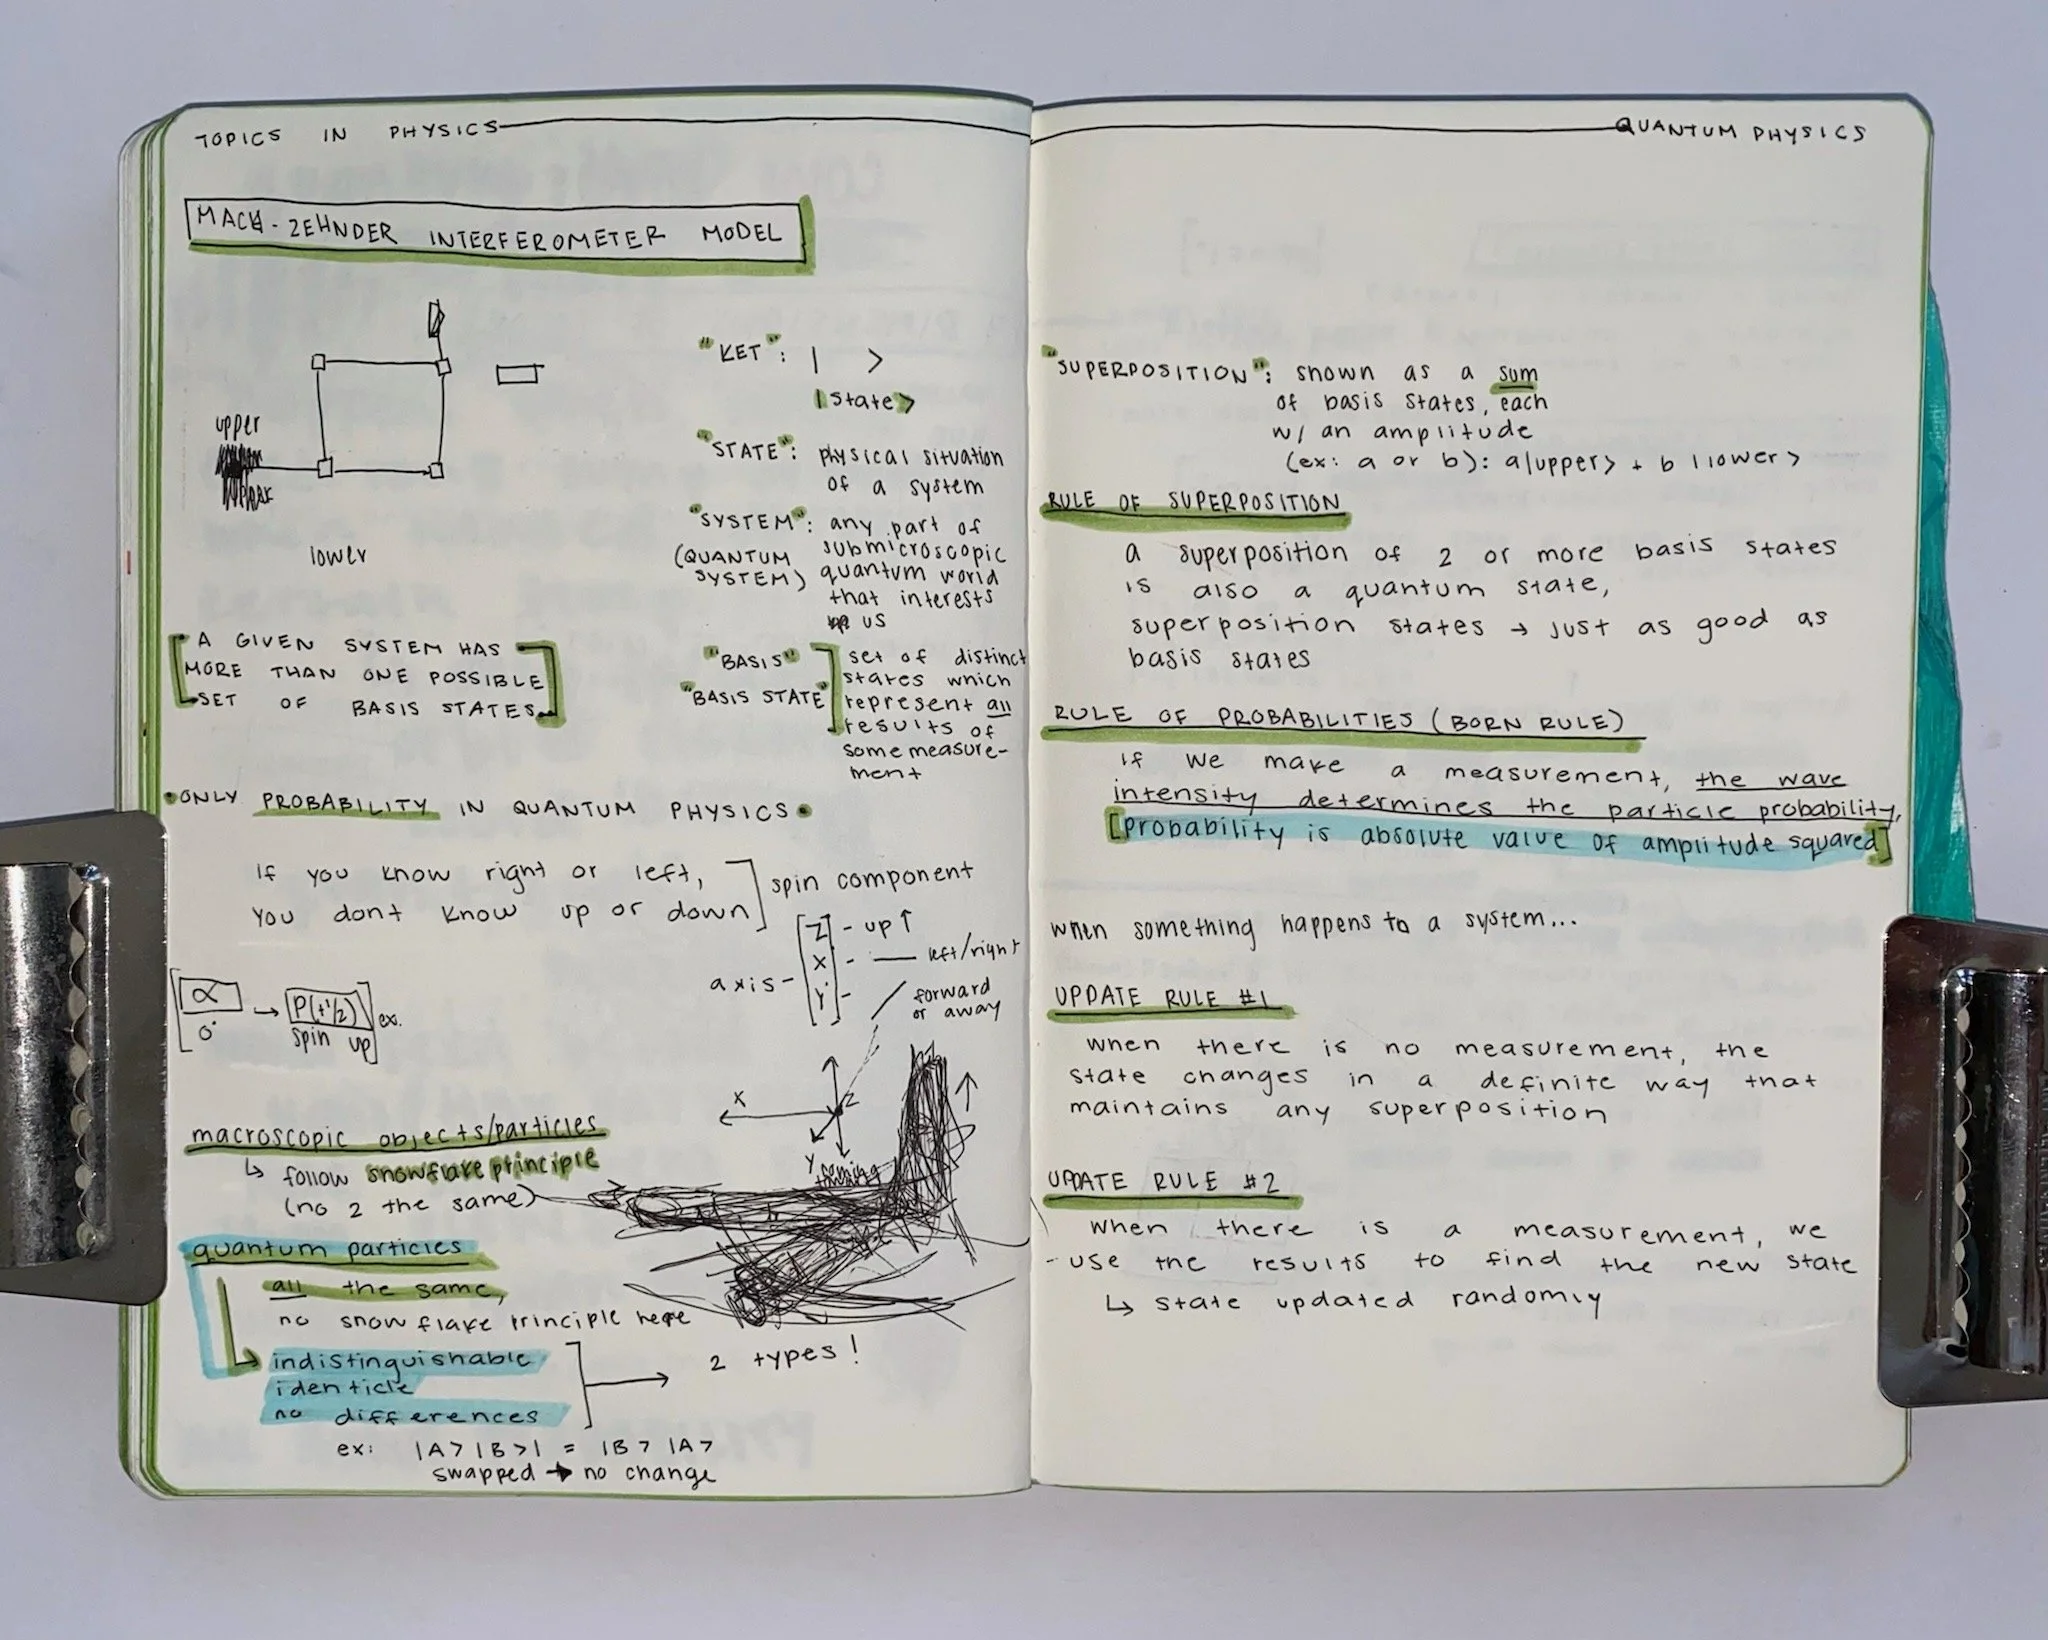 TOPICS IN PHYSICS
MACH-ZEHNDER INTERFEROMETER MODEL
upper
lower
"KET": | >
|state>
"STATE": physical situation
of a system
"SYSTEM": any part of
(QUANTUM SYSTEM) submicroscopic
quantum world
that interests
us
A GIVEN SYSTEM HAS
MORE THAN ONE POSSIBLE
SET OF BASIS STATES
"BASIS"
"BASIS STATE"
set of distinct
states which
represent all
results of
some measure-
ment
•ONLY PROBABILITY IN QUANTUM PHYSICS•
If you know right or left,
you dont know up or down
spin component
axis-
Z - up ↑
X - — left/right
Y - / forward
or away
[∝
0° → P(+1/2)
spin up] ex.
X
Z
Y
coming
macroscopic objects/particles
↳ follow snowflake principle
(no 2 the same)
quantum particles
all the same,
no snowflake principle here
indistinguishable
identicle
no differences
→ 2 types!
ex: |A>|B>| = |B>|A>
swapped → no change
QUANTUM PHYSICS
"SUPERPOSITION": shown as a sum
of basis states, each
w/ an amplitude
(ex: a or b): a|upper> + b|lower>
RULE OF SUPERPOSITION
a superposition of 2 or more basis states
is also a quantum state,
superposition states → just as good as
basis states
RULE OF PROBABILITIES (BORN RULE)
if we make a measurement, the wave
intensity determines the particle probability,
[probability is absolute value of amplitude squared]
when something happens to a system...
UPDATE RULE #1
when there is no measurement, the
state changes in a definite way that
maintains any superposition
UPDATE RULE #2
when there is a measurement, we
-use the results to find the new state
↳ state updated randomly